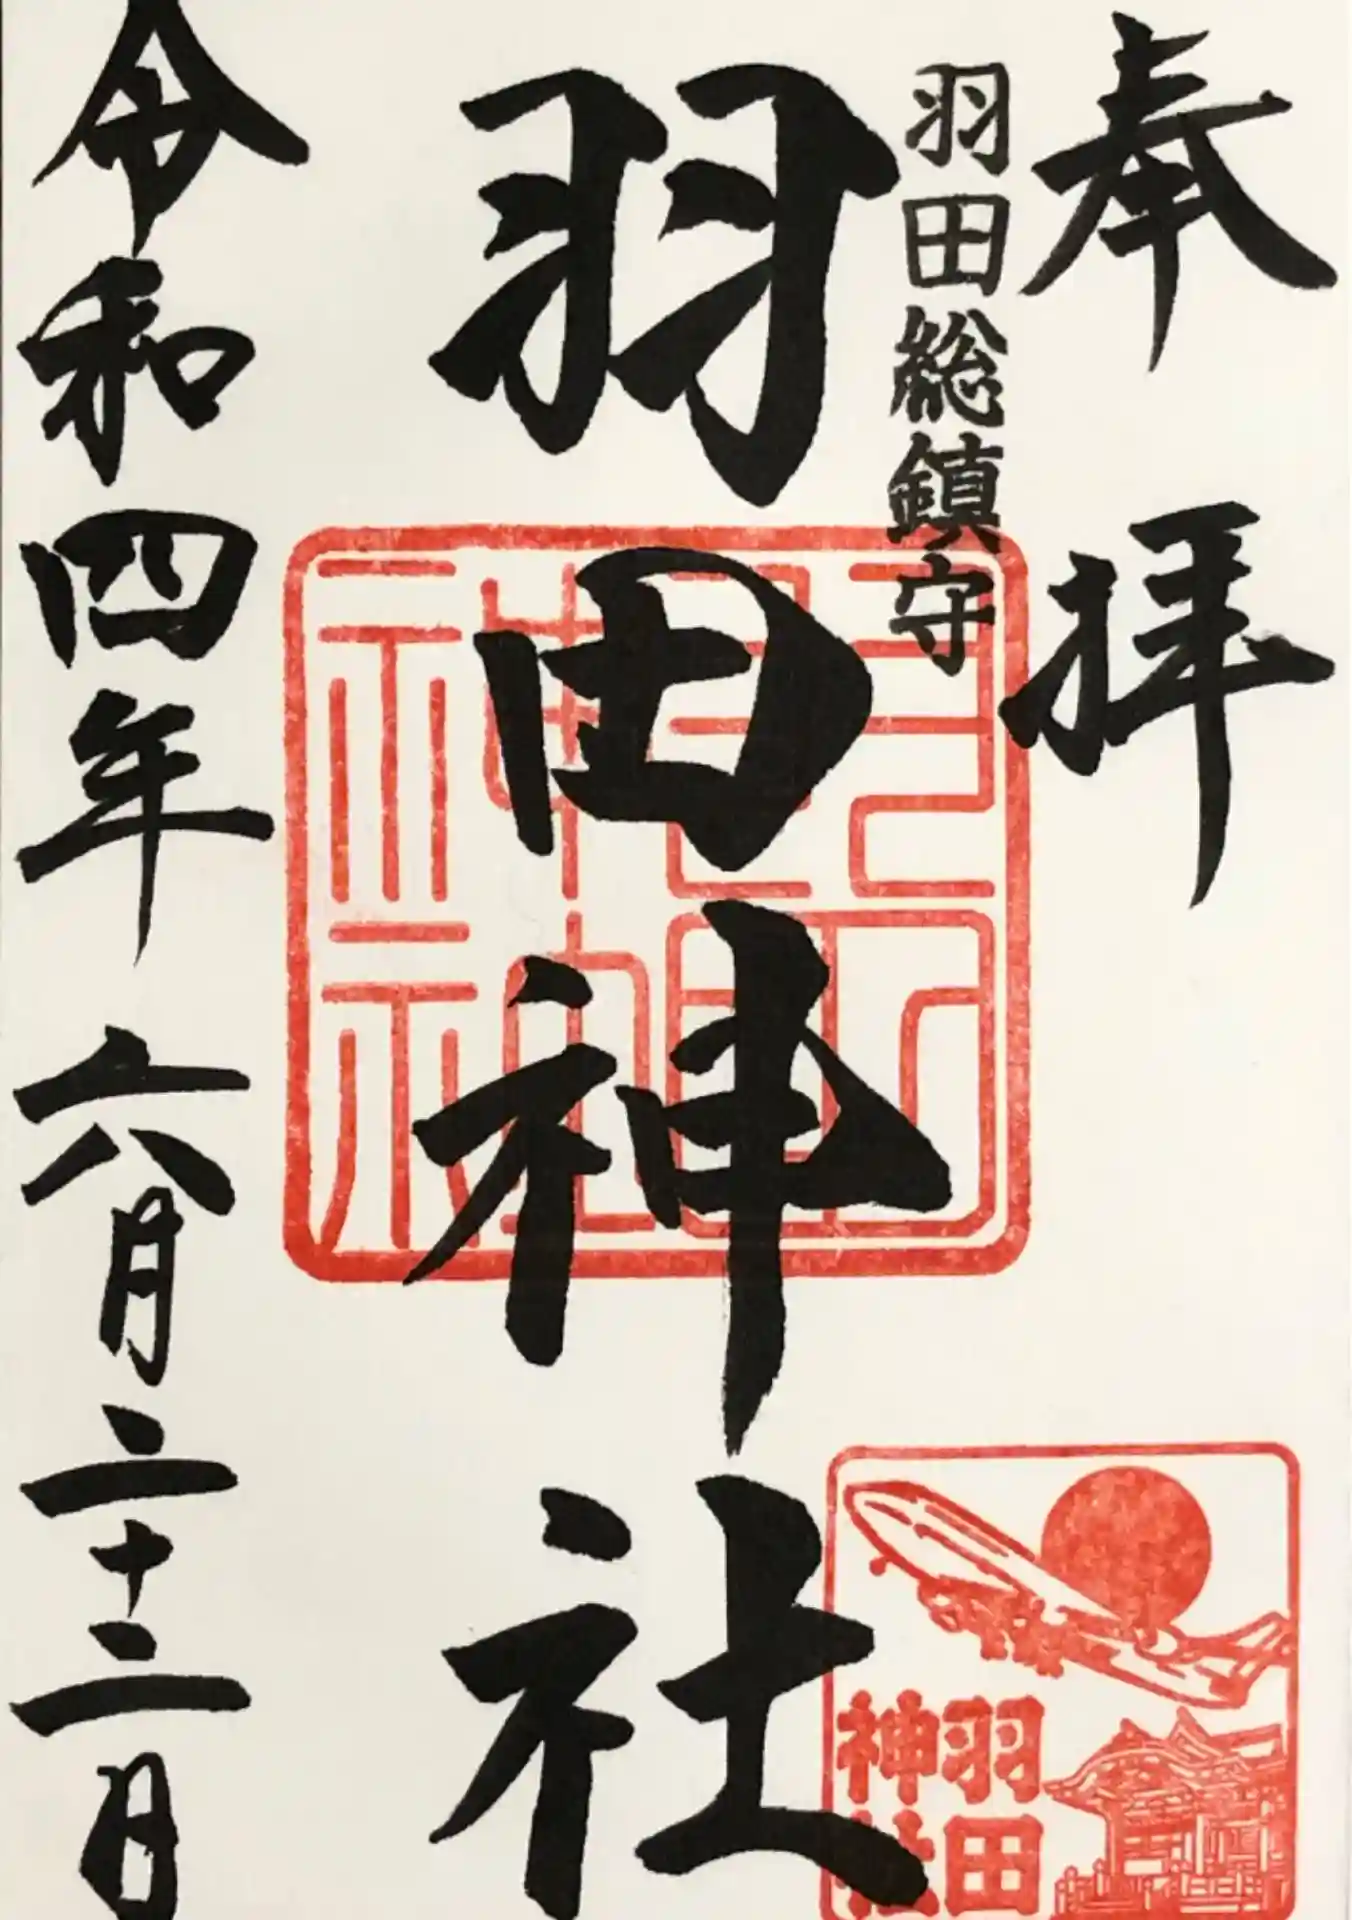 奉拝
羽田総鎮守
羽田神社
令和四年六月二十二日
羽田
神社